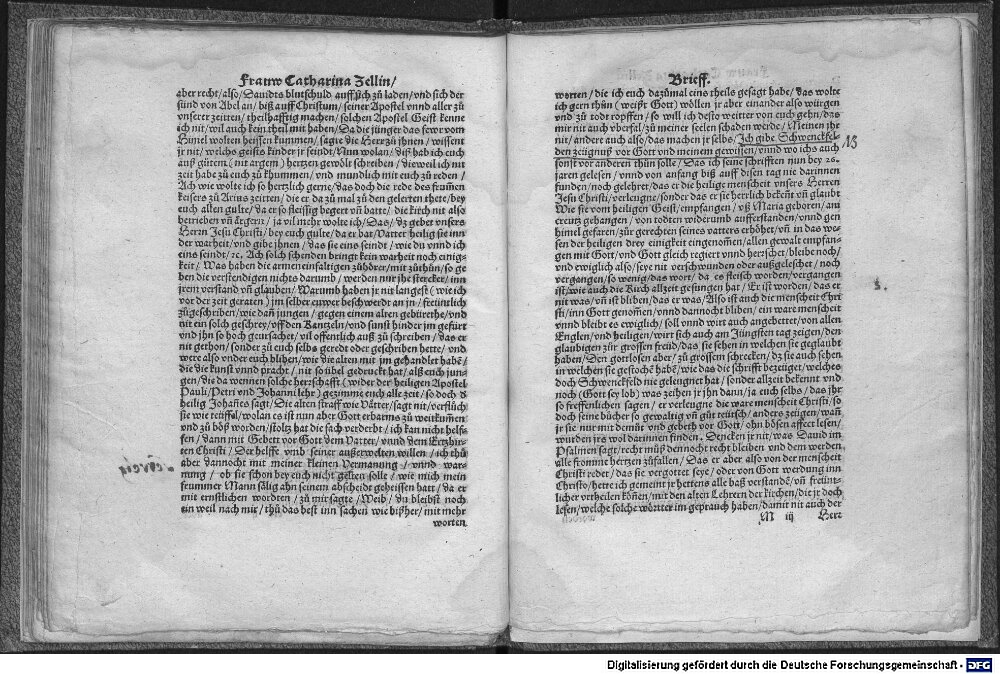 Frauw Catharina Zellin/
aber recht/also/Dauidts blutschuld auff sich zů laden/vnd sich der
sünd von Abel an/biß auff Christum/seiner Apostel vnnd aller zů
vnserer zeitten/theilhafftig machen/solchen Apostel Geist kenne
ich nit/wil auch kein theil mit haben/Da die jünger das fewr vom
Himel wolten heissen kummen/sagte die Herr zů jhnen/wissent
jr nit/welchs geists kinder jr seindt/Nun wolan/diß hab ich euch
auß gůtem(nit argem)hertzen gewölt schreiben/dieweil ich nit
zeit habe zů euch zů khummen/vnd mundlich mit euch zů reden/
Ach wie wolt ich so hertzlich gerne/das doch die rede des frumen
keisers zů Arius zeitten/die er da zů mal zů den gelerten thete/bey
euch allen gulte/da er so fleissig begert vñ batte/die kirch nit also
betrüben vñ ärgern/ja vil mehr wolte ich/Das/dz gebet vnsers
Herrn Jesu Christi/bey euch gulte/da er bat/Vatter heilig sie inn
der warheit/vnd gibe jhnen/das sie eins seindt/wie du vnnd ich
eins seindt/ec. Ach solch schenden bringt kein warheit noch einig-
keit/Was haben die armen einfaltigen zůhörer/mit zůthün/so ge
ben die verstendigen nichts darumb/werden nur jhe stercker/inn
jrem verstand vñ glauben/Warumb haben jr nit langest(wie ich
vor der zeit geraten)jm selber euwer beschwerdt an jn/freüntlich
zůgeschriben/wie dañ jungen/gegen einem alten gebürethe/vnd
nit ein solch geschrey/vff den Kantzeln/vnd sunst hinder jm gefürt
vnd jhn so hoch geursachet/vil offentlich auß zů schreiben/das er
nit gethon/sonder zů euch selbs geredt oder geschriben hette/vnd
were also vnder euch blihen/wie die alten mit jm gehandlet habẽ/
die die kunst vnnd pracht/nit so übel gedruckt hat/als euch jun-
gen/die da wennen solche herschafft(wider der heiligen Apostel
Pauli/Petri vnd Johanni lehr)gezimme euch alle zeit/so doch d
heilig Johañes sagt/Die alten straff wie Vätter/sagt nit/verflůch
sie wie teüffel/wolan es ist nun aber Gott erbarms zů weit kumen
vnd zů böß worden/stoltz hat die sach verderbt/ich kan nicht helf-
fen/dann mit Gebett vor Gott dem Vatter/vnnd dem Ertzhir-
ten Christi/Der helffe vmb seiner außerwelten willen/ich thů
aber dannocht mit meiner kleinen Vermanung/vnnd war-
nung/ob sie schon bey euch nicht gelten solle/wie mich mein
frummer Mann sälig ahn seinem abscheidt geheissen hatt/da er
mit ernstlichen wordten/zů mir sagte/Weib/du bleibst noch
ein weil nach mir/thů das best inn sachen wie bißher/mit mehr
worten
Brieff.
worten/die ich euch dazůmal eins theils gesagt habe/das wolte
ich gern thün(weißt Gott)wöllen jr aber einander also würgen
vnd zů todt ropffen/so will ich desto weitter von euch gehn/das
mir nit auch vberfal/zů meiner seelen schaden werde/Meinen jhr
nit/andere auch also/das machen jr selbs/Ich gibe Schwenckfel-
den zeügnuß vor Gott vnd meinem gewissen/vnnd wo ichs auch
sonst vor anderen thůn solle/Das ich seine schrifften nun bey 26.
jaren gelesen/vnnd von anfang biß auff disen tag nie darinnen
funden/noch gelehret/das er die heilige menscheit vnsers Herren
Jesu Christi/verleugne/sonder das er sie herrlich bekeñt vñ glaubt
Wie sie vom heiligen Geist/empfangen/vß Maria geboren/am
creutz gehangen/von todten widerumb aufferstanden/vnnd gen
himel gefaren/zůr gerechten seines vatters erhöhet/vñ in das we-
sen der heiligen drey einigkeit eingenomẽ/allen gewalt empfan-
gen mit Gott/vnd Gott gleich regiert vnnd herrschet/bleibe noch/
vnd ewiglich also/seye nit verschwunden oder außgeleschet/noch
vergangen/so wenig/das wort/da es fleisch worden/vergangen
ist/wie auch die Kirch allzeit gesungen hat/Er ist worden/das er
nit was/vñ ist bliben/das er was/Also ist auch die menscheit Chri
sti/inn Gott genomẽ/vnnd dannocht bliben/ein ware menscheit
vnnd bleibt es ewiglich/soll vnnd wirt auch angebettet/von allen
Englen/vnd heiligen/wirt sich auch am Jüngsten tag zeigen/den
glaubigen zůr grossen freid/das sie sehen in welchen sie geglaubt
haben/Den gottlosen aber/zů grossem schrecken/dz sie auch sehen
in welchen sie gestochẽ habẽ/wie das die schrifft bezeüget/welches
doch Schwenckfeld nie geleugnet hat/sonder allzeit bekennt vnd
noch(Gott sey lob)was zeihen jr jhn dann/ja euch selbs/das jhr
so freffenlichen sagen/er verleugne die ware menscheit Christi/so
doch seine bücher so gewaltig vñ gůt teütsch/anders zeigen/wañ
jr sie nur mit demůt vnd gebeth vor Gott/ohn bösen affect lesen/
wurden jrs wol darinnen finden. Dencken jr nit/was Dauid im
Psalmen sagt/recht můß dennocht recht bleiben vnd dem werden
alle frommẽ hertzen zůfallen/Das er aber also von der menscheit
Christi redet/das sie vergottet seye/oder von Gott werdung inn
Christo/hette ich gemeint jr hettens alle baß verstandẽ/vñ freünt-
licher vrtheilen könẽ/mit den alten Lehrern der kirchen/die jr doch
lesen/welche solche wörter im geprauch haben/damit nit auch der
M iij Herr
Digitalisierung gefördert durch die Deutsche Forschungsgemeinschaft - DFG